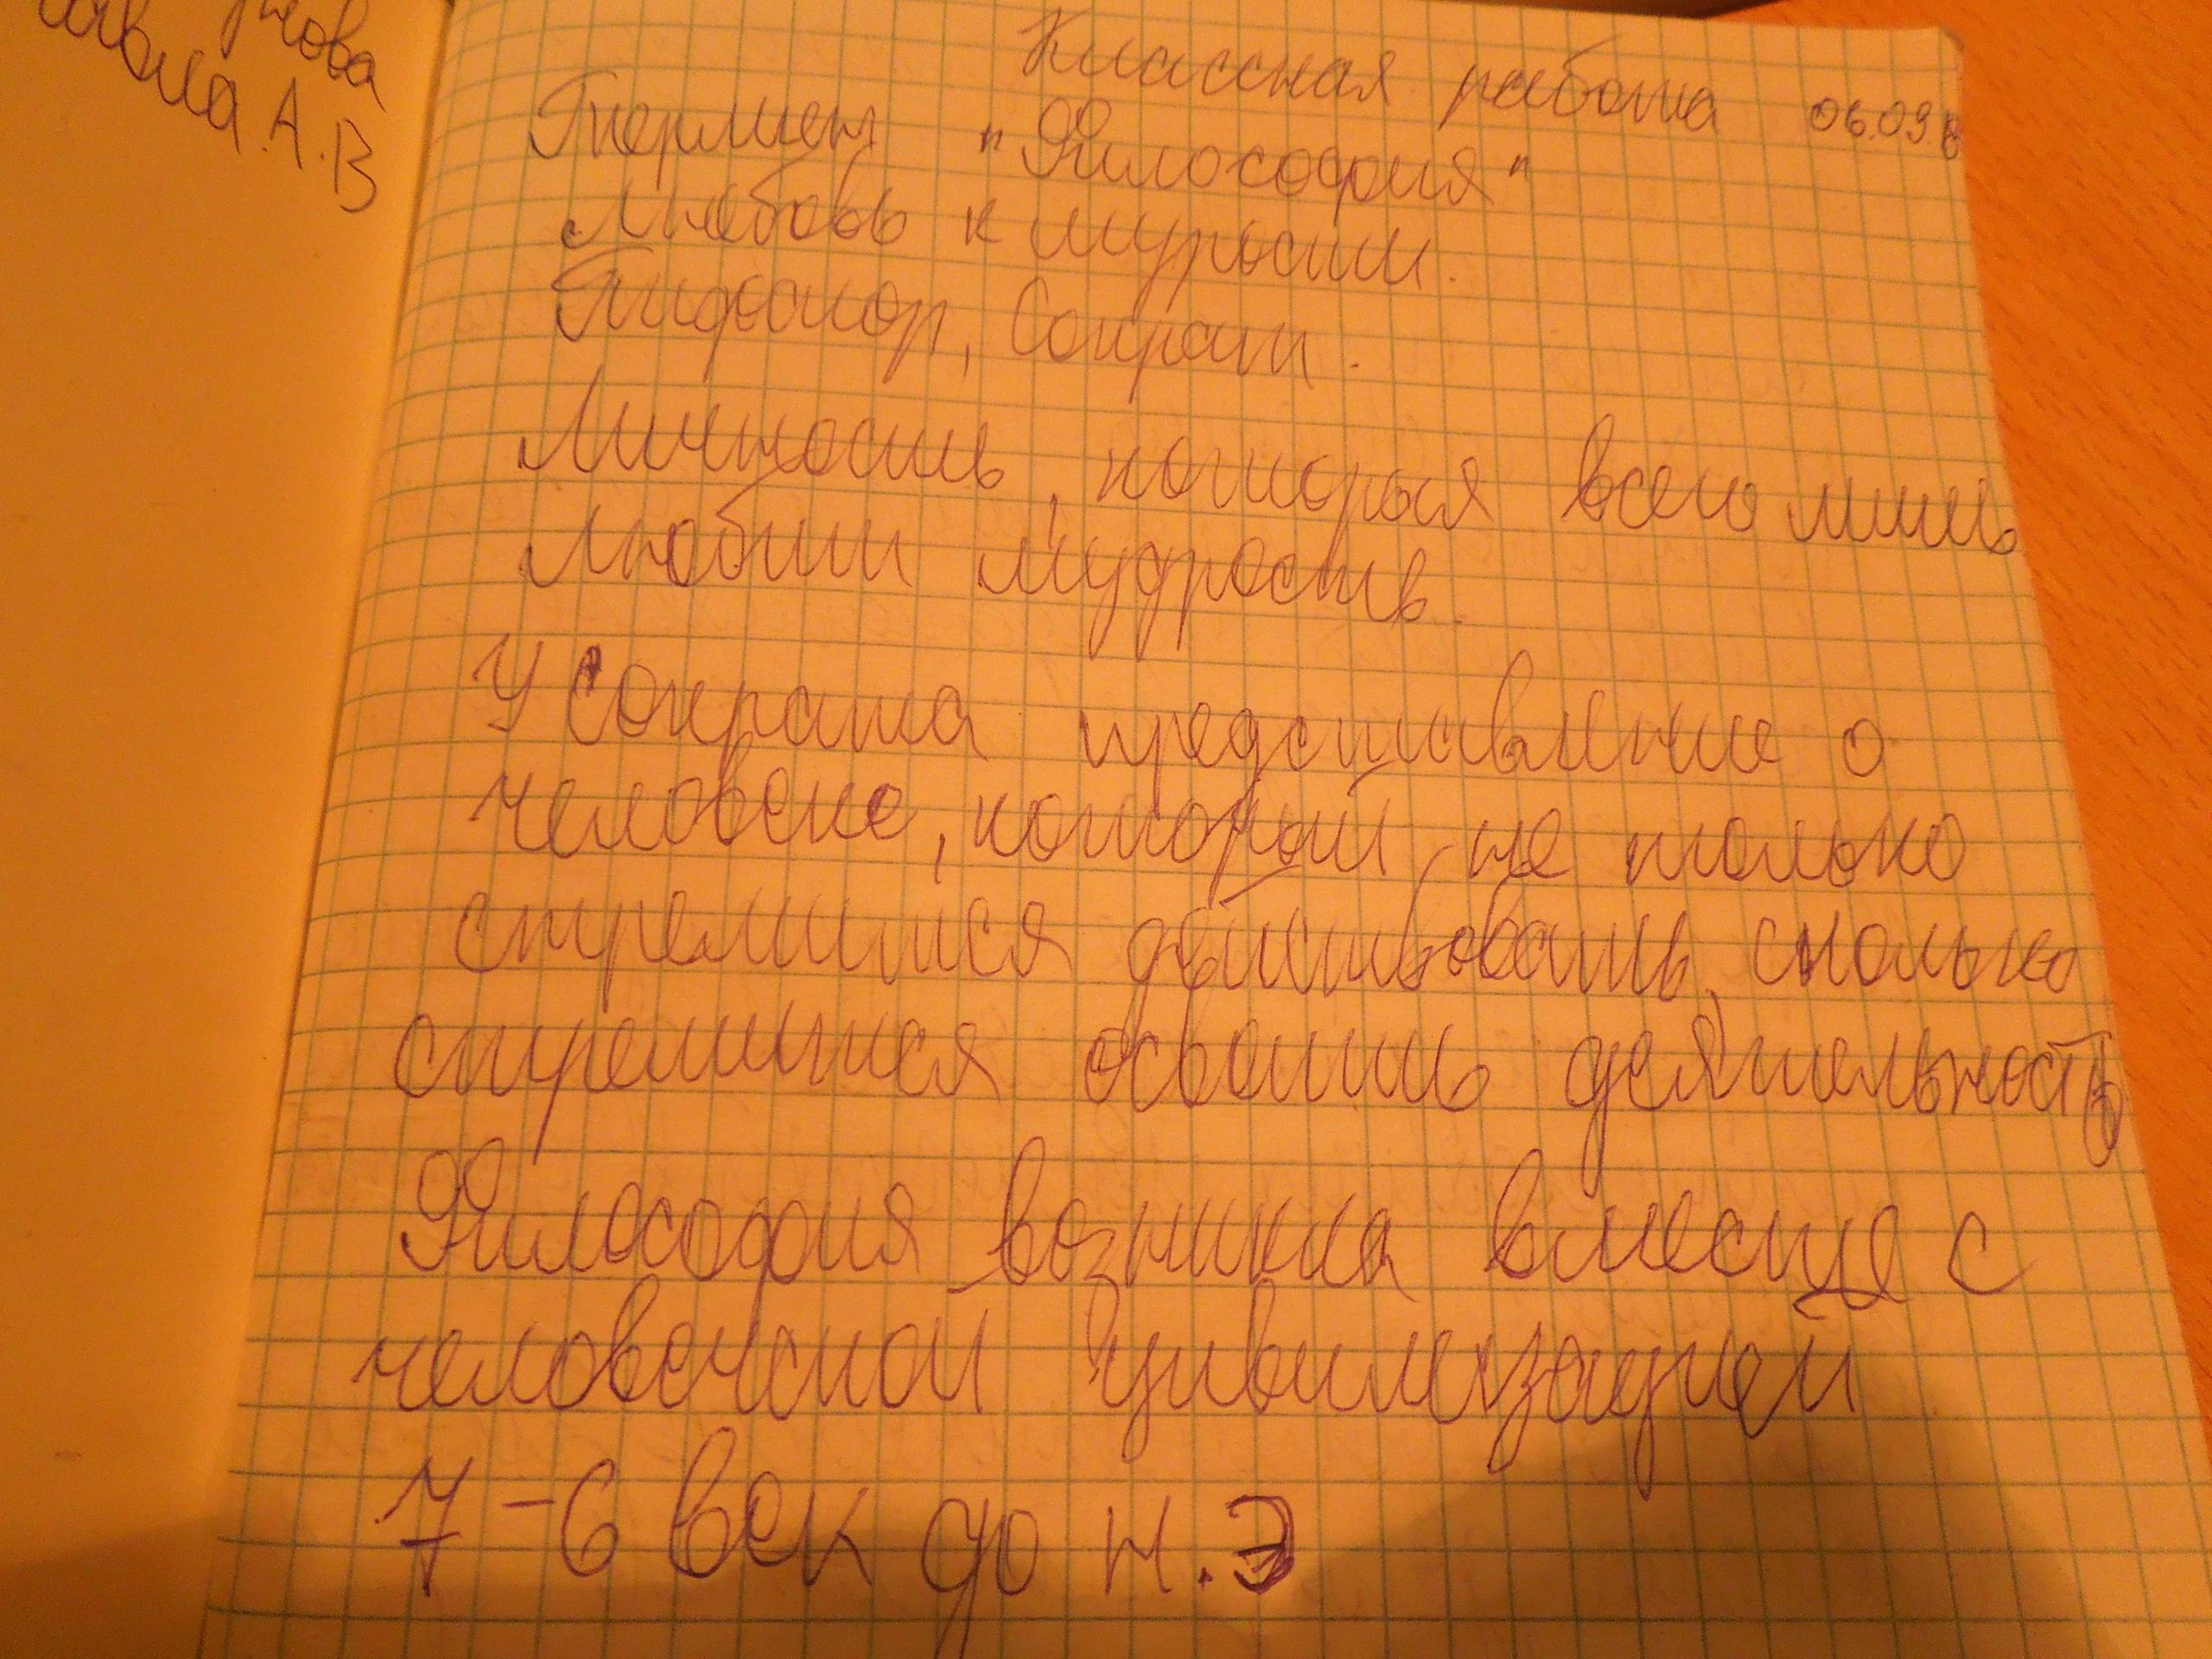 Классная работа 06.09
Термен "Философия"
Любовь к мурости.
Пифогор, Сократ.
Личность, которая всего лишь
любит мудрость.
У Сократа представление о
человеке, который не только
стремится действовать, сколько
стремится осветить деятельность
Философия возникла вместе с
человеческой цивилизацией
7-6 век до н.э